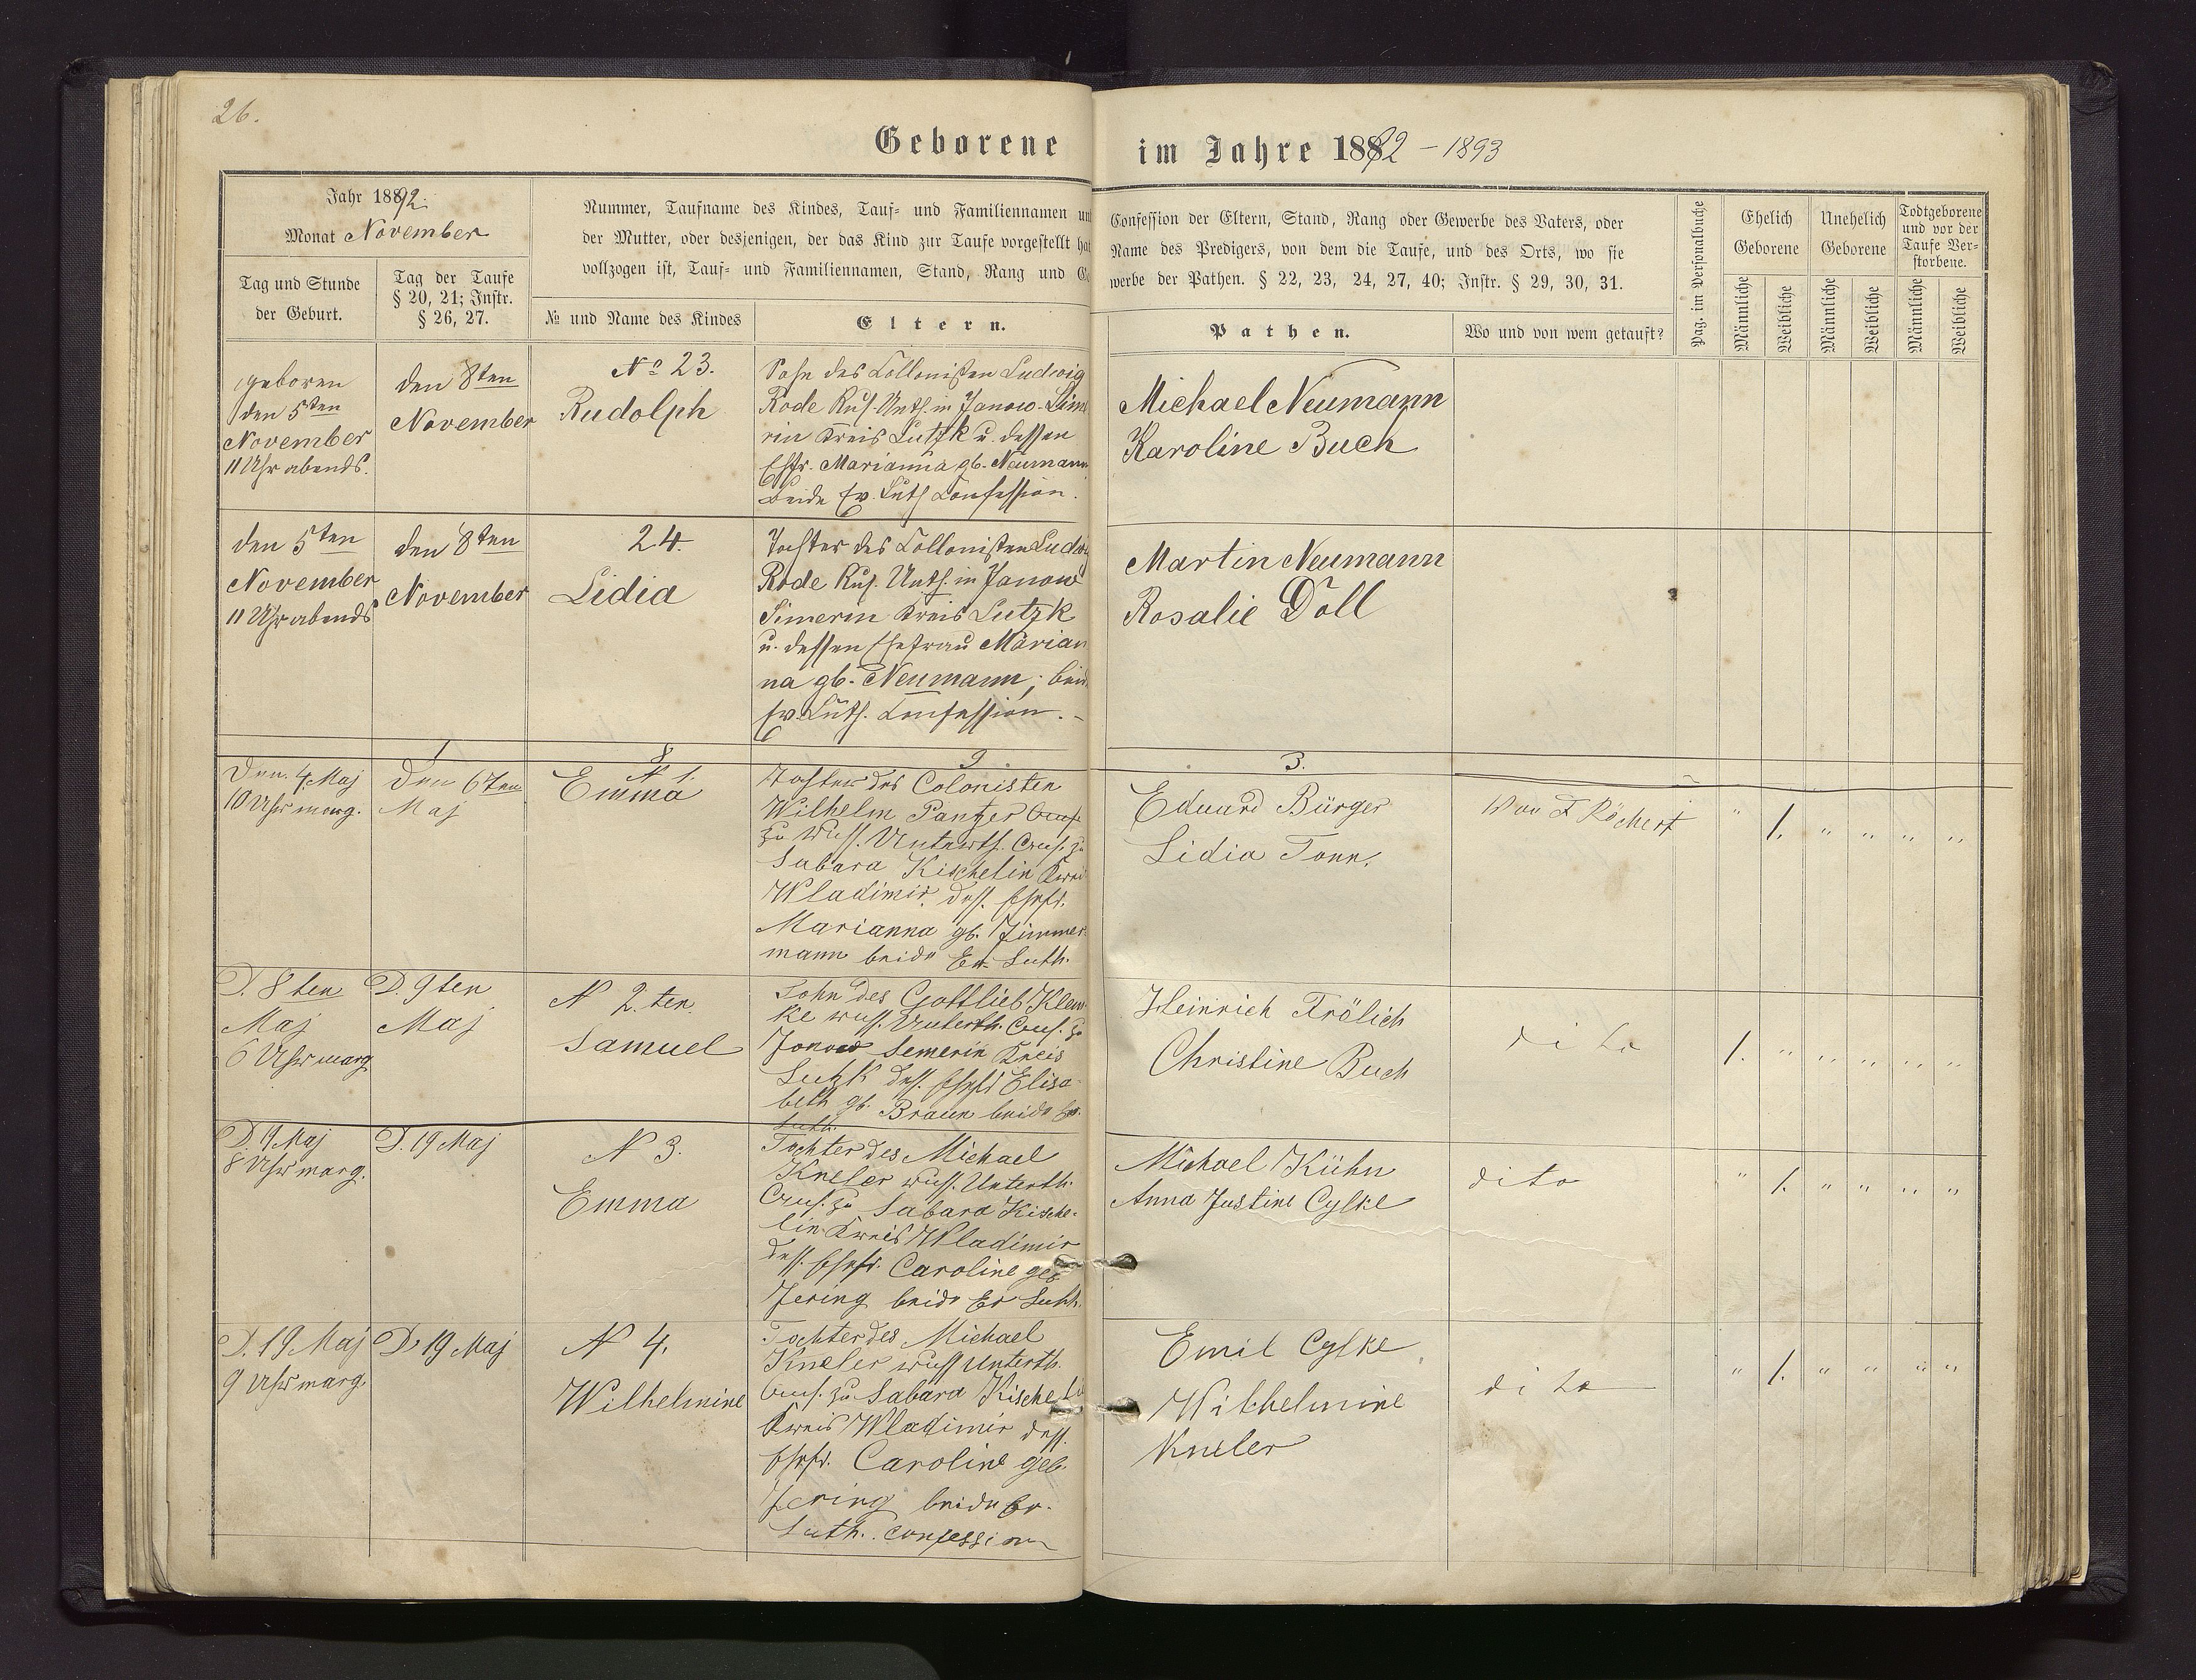 26.
Geborene
im Jahre 1892 - 1893
Jahr 1892.
Monat November
Tag und Stunde
der Geburt.
Tag der Taufe
§ 20, 21; Instr.
§ 26, 27.
Nummer, Taufname des Kindes, Tauf- und Familiennamen
der Mutter, oder desjenigen, der das Kind zur Taufe vorgestellt
vollzogen ist, Tauf- und Familiennamen, Stand, Rang und
№ und Name des Kindes
Eltern.
Confession der Eltern, Stand, Rang oder Gewerbe des Vaters, oder
Name des Predigers, von dem die Taufe, und des Orts, wo sie
werbe der Pathen. § 22, 23, 24, 27, 40; Instr. § 29, 30, 31.
Pathen.
Wo und von wem getauft?
Pag. im Personalbuche
Ehelich
Geborene
Unehelich
Geborene
Todtgeborene
und vor der
Taufe Ver-
storbene.
Männliche
Weibliche
Männliche
Weibliche
Männliche
Weibliche
geboren
den 5ten
November
11 Uhr abends.
den 8ten
November
No 23.
Rudolph
Sohn des Collonisten Ludwig
Rode Rus. Unth. in Janow-
rin Kreis Lutzk u. dessen
Ehfr. Marianna gb. Neumann
beide Ev. Luth Confession.
Michael Neumann
Karoline Buch
den 5ten
November
11 Uhr abends
den 8ten
November
24.
Lidia
Tochter des Collonisten
Rode Rus. Unth. in Janow
Simerin Kreis Lutzk
u. dessen Ehefrau Marian
na gb. Neumann;
Ev. Luth. Confession. -
Martin Neumann
Rosalie Doll
1
2
3.
Den 4. Maj
10 Uhr morg.
Den 6ten
Maj
N 1.
Emma
Tochter des Colonisten
Wilhelm Pantzer
zu russ. Unterth. zu
Sabara Kischelin
Wladimir dess. Ehefr.
Marianna gb. Zimmer
mann beide Ev Luth.
Eduard Bürger
Lidia Tonn.
Von F Röchert
" 1. " " " "
D. 8ten
Maj
6 Uhr morg
D. 9ten
Maj
N 2.ten
Samuel
Sohn des Gottlieb
ke russ. Unterth. zu
Janow Semerin Kreis
Lutzk dess. Ehefr Elisa
beth gb. Braun beide Ev.
Luth.
Heinrich Frölich
Christine Buch
dito
1. " " " " "
D. 9 Maj
8 Uhr morg.
D. 19 Maj
N 3.
Emma
Tochter des Michael
Kneler russ. Unterth.
zu Sabara Kische-
lin Kreis Wladimir
dess. Ehefr. Caroline geb
Jering beide Ev Luth.
Michael Kühn
Anna Justine Cylke
dito
" 1. " " " "
D. 19 Maj
9 Uhr morg
D. 19 Maj
N 4.
Wilhelmine
Tochter des Michael
Kneler russ Unterth.
zu Sabara Kischeli
Kreis Wladimir dess.
Ehefr. Caroline geb.
Jering beide Ev.
Luth. Confession
Emil Cylke
Wilhelmine
Kneler
dito
" 1. " " " "